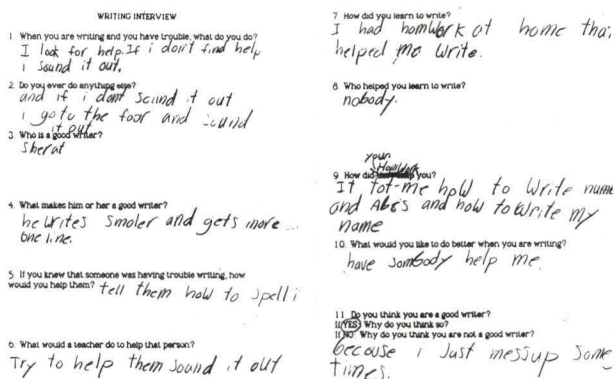 WRITING INTERVIEW
1. When you are writing and you have trouble, what do you do?
I look for help. If i don't find help
i sound it out.
2. Do you ever do anything else?
and if i dont sound it out
i go to the foor and sound
it out
3. Who is a good writer?
Sherat
4. What makes him or her a good writer?
he writes smoler and gets more
one line.
5. If you knew that someone was having trouble writing, how
would you help them? tell them how to spell i
6. What would a teacher do to help that person?
Try to help them sound it out
7. How did you learn to write?
I had homWork at home tha
helped me write.
8. Who helped you learn to write?
nobody.
your
Homework
9. How did help you?
It tot-me how to write name
and Abcs and how to write my
name
10. What would you like to do better when you are writing?
have sombody help me.
11. Do you think you are a good writer?
If YES: Why do you think so?
If NO: Why do you think you are not a good writer?
because i Just messup some
times.